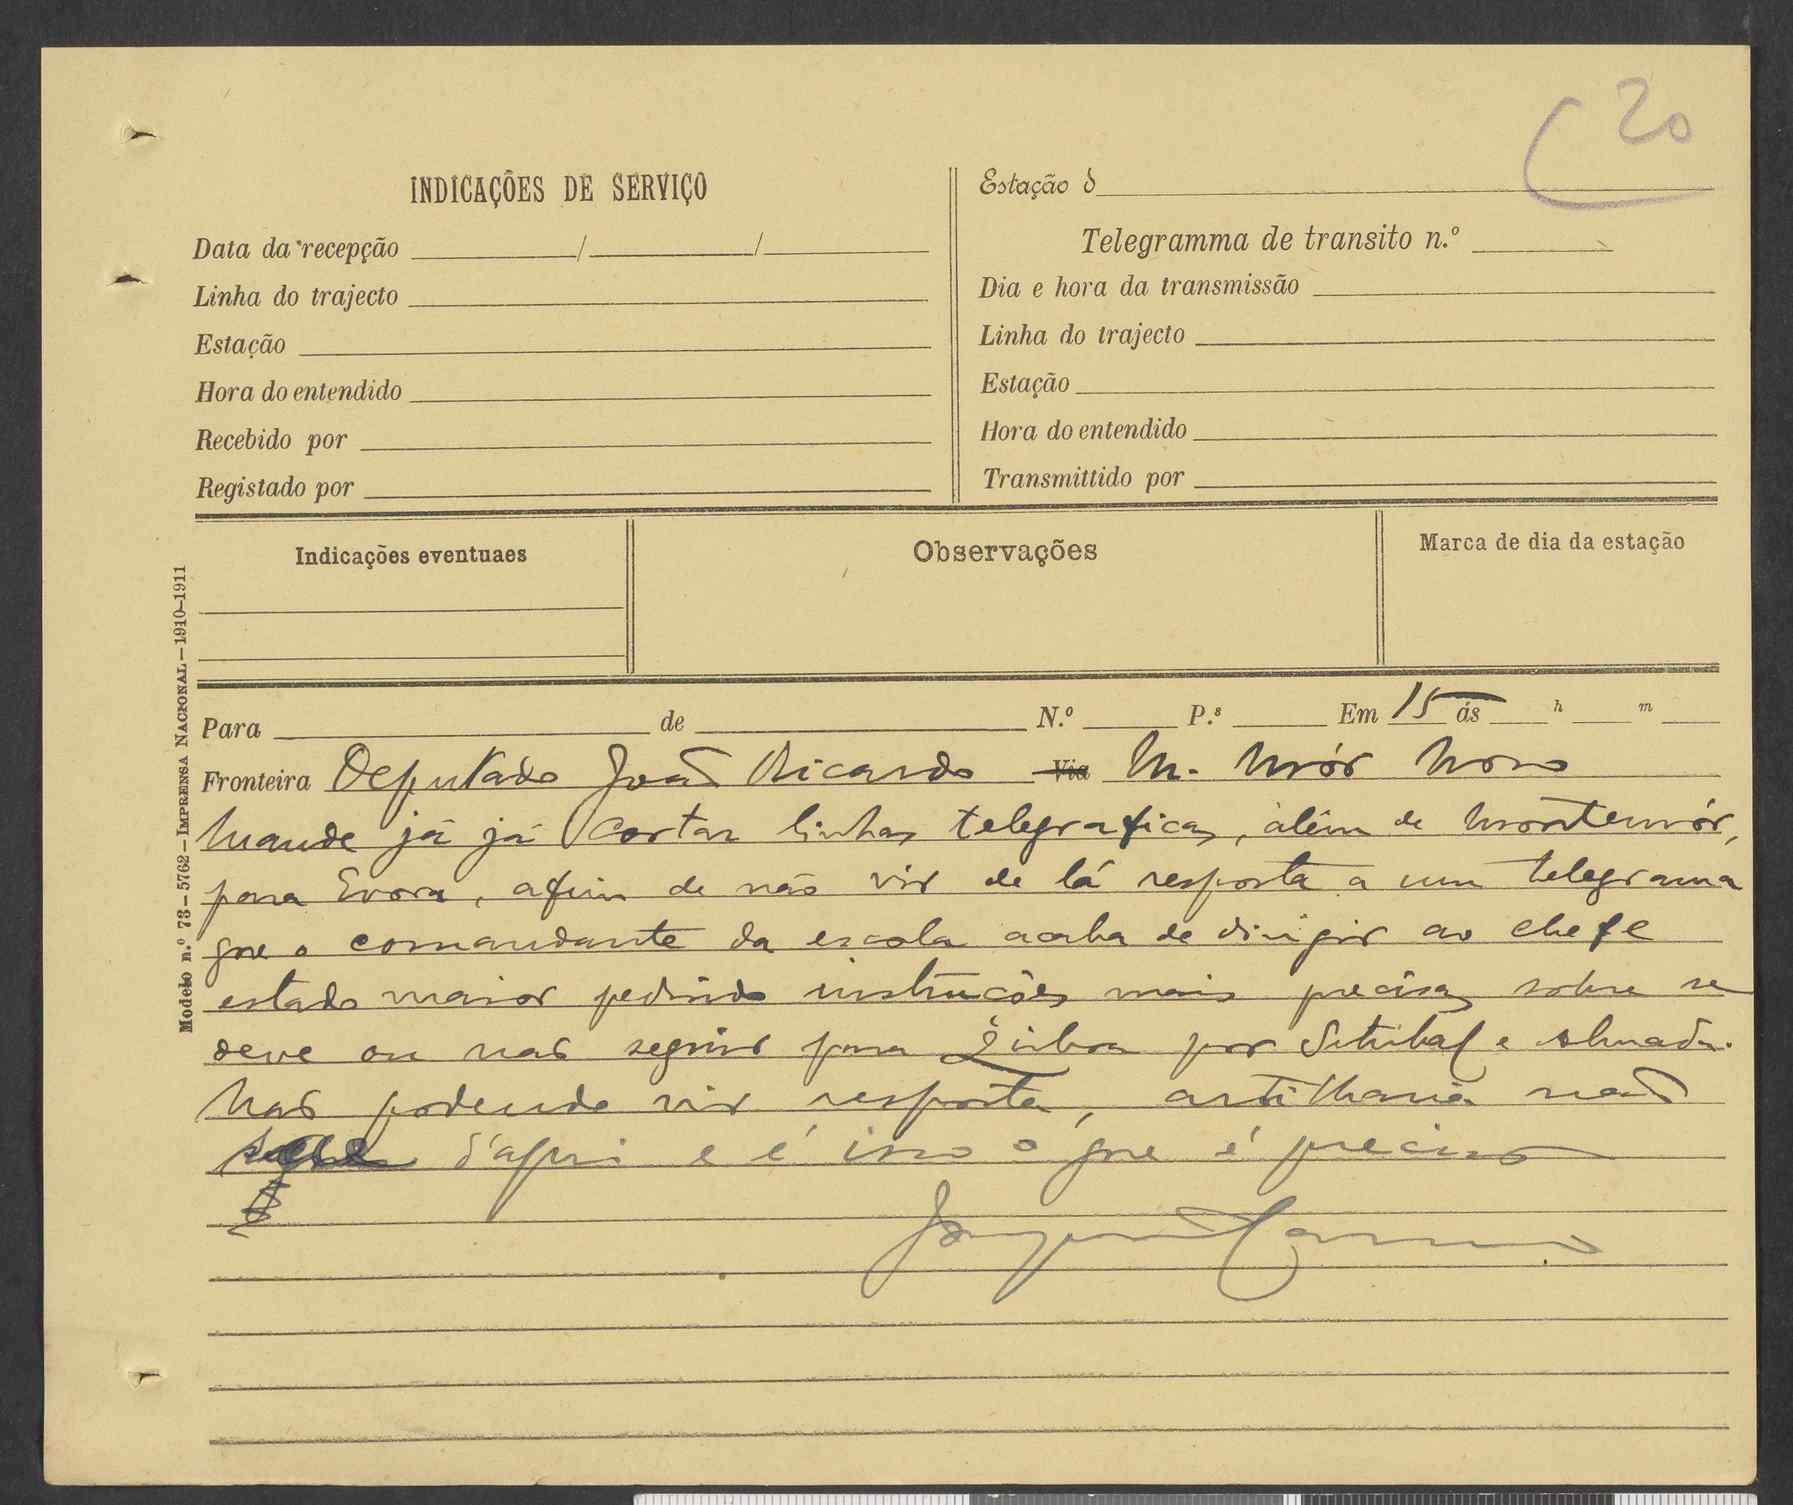 20
INDICAÇÕES DE SERVIÇO
Data da recepção / /
Linha do trajecto
Estação
Hora do entendido
Recebido por
Registado por
Estação d
Telegramma de transito n.º
Dia e hora da transmissão
Linha do trajecto
Estação
Hora do entendido
Transmittido por
Indicações eventuaes
Observações
Marca de dia da estação
Modelo n.º 73—5762—IMPRENSA NACIONAL—1910-1911
Para de N.º P.s Em 15 ás h m
Fronteira Deputado João Ricardo Via M. Mór Novo
Mande já já cortar linhas telegraficas, além de Montemór,
para Evora, afim de não vir de lá resposta a um telegrama
que o comandante da escola acaba de dirigir ao chefe
estado maior pedindo instruções mais precisas sobre se
deve ou não seguir para Lisboa por Setubal e Almada.
Não podendo vir resposta, artilharia não
segue d'aqui e é isso o que é preciso